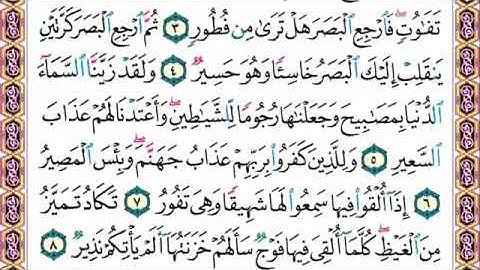 تَفَٰوُتٍۖ فَٱرْجِعِ ٱلْبَصَرَ هَلْ تَرَىٰ مِن فُطُورٍ ٣ ثُمَّ ٱرْجِعِ ٱلْبَصَرَ كَرَّتَيْنِ
يَنقَلِبْ إِلَيْكَ ٱلْبَصَرُ خَاسِئًا وَهُوَ حَسِيرٌ ٤ وَلَقَدْ زَيَّنَّا ٱلسَّمَآءَ
ٱلدُّنْيَا بِمَصَٰبِيحَ وَجَعَلْنَٰهَا رُجُومًا لِّلشَّيَٰطِينِۖ وَأَعْتَدْنَا لَهُمْ عَذَابَ
ٱلسَّعِيرِ ٥ وَلِلَّذِينَ كَفَرُوا۟ بِرَبِّهِمْ عَذَابُ جَهَنَّمَۖ وَبِئْسَ ٱلْمَصِيرُ
٦ إِذَآ أُلْقُوا۟ فِيهَا سَمِعُوا۟ لَهَا شَهِيقًا وَهِىَ تَفُورُ ٧ تَكَادُ تَمَيَّزُ
مِنَ ٱلْغَيْظِۖ كُلَّمَآ أُلْقِىَ فِيهَا فَوْجٌ سَأَلَهُمْ خَزَنَتُهَآ أَلَمْ يَأْتِكُمْ نَذِيرٌ ٨